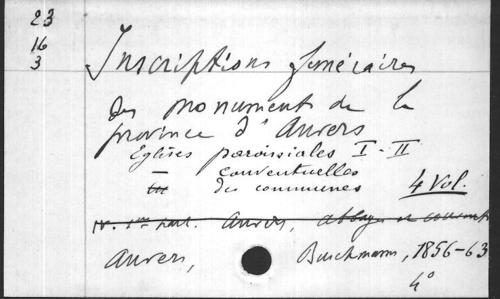 23
16
3
Inscriptions funéraires
des monuments de la
province d'Anvers
Eglises paroissiales I - II
— conventuelles
des communes 4 Vol.
IV. Anvers, abbayes et couvents
Anvers, Buschmann, 1856-63
4°